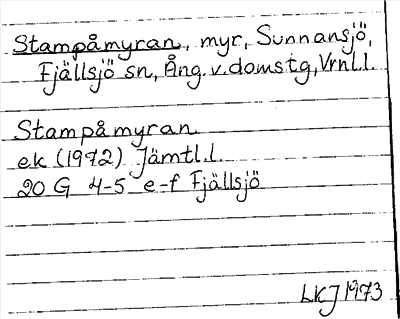 Stampåmyran, myr, Sunnansjö,
Fjällsjö sn, Ång. v. domstg, Vrnl.l.
Stampåmyran
ek (1972) Jämtl.l.
20 G 4-5 e-f Fjällsjö
LKJ 1973